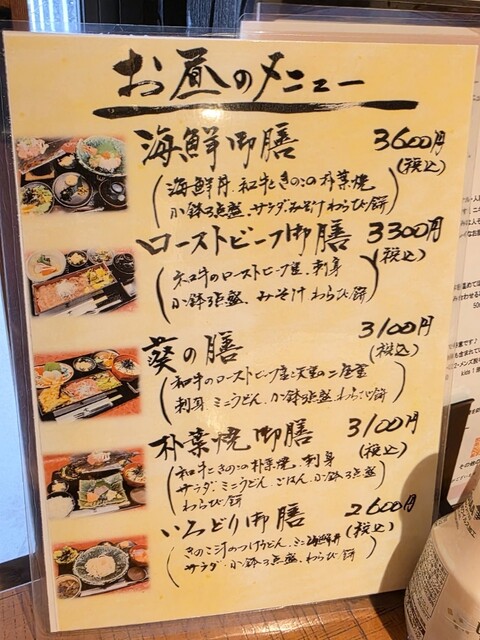 お昼のメニュー
海鮮御膳 3600円
(税込)
(海鮮丼、和牛ときのこの朴葉焼
小鉢3点盛、サラダ、みそ汁、わらび餅)
ローストビーフ御膳 3300円
(税込)
のローストビーフ重、刺身
小鉢3点盛、みそ汁、わらび餅)
葵の膳 3100円
(税込)
(和牛のローストビーフ重と天重の二居重
刺身、ミニうどん、小鉢3点盛、わらび餅)
朴葉焼御膳 3100円
(税込)
(和牛ときのこの朴葉焼、刺身
サラダ、ミニうどん、ごはん、小鉢3点盛
わらび餅)
いろどり御膳 2600円
(税込)
(きのこ汁のつけうどん、ミニ海鮮丼
サラダ、小鉢3点盛、わらび餅)